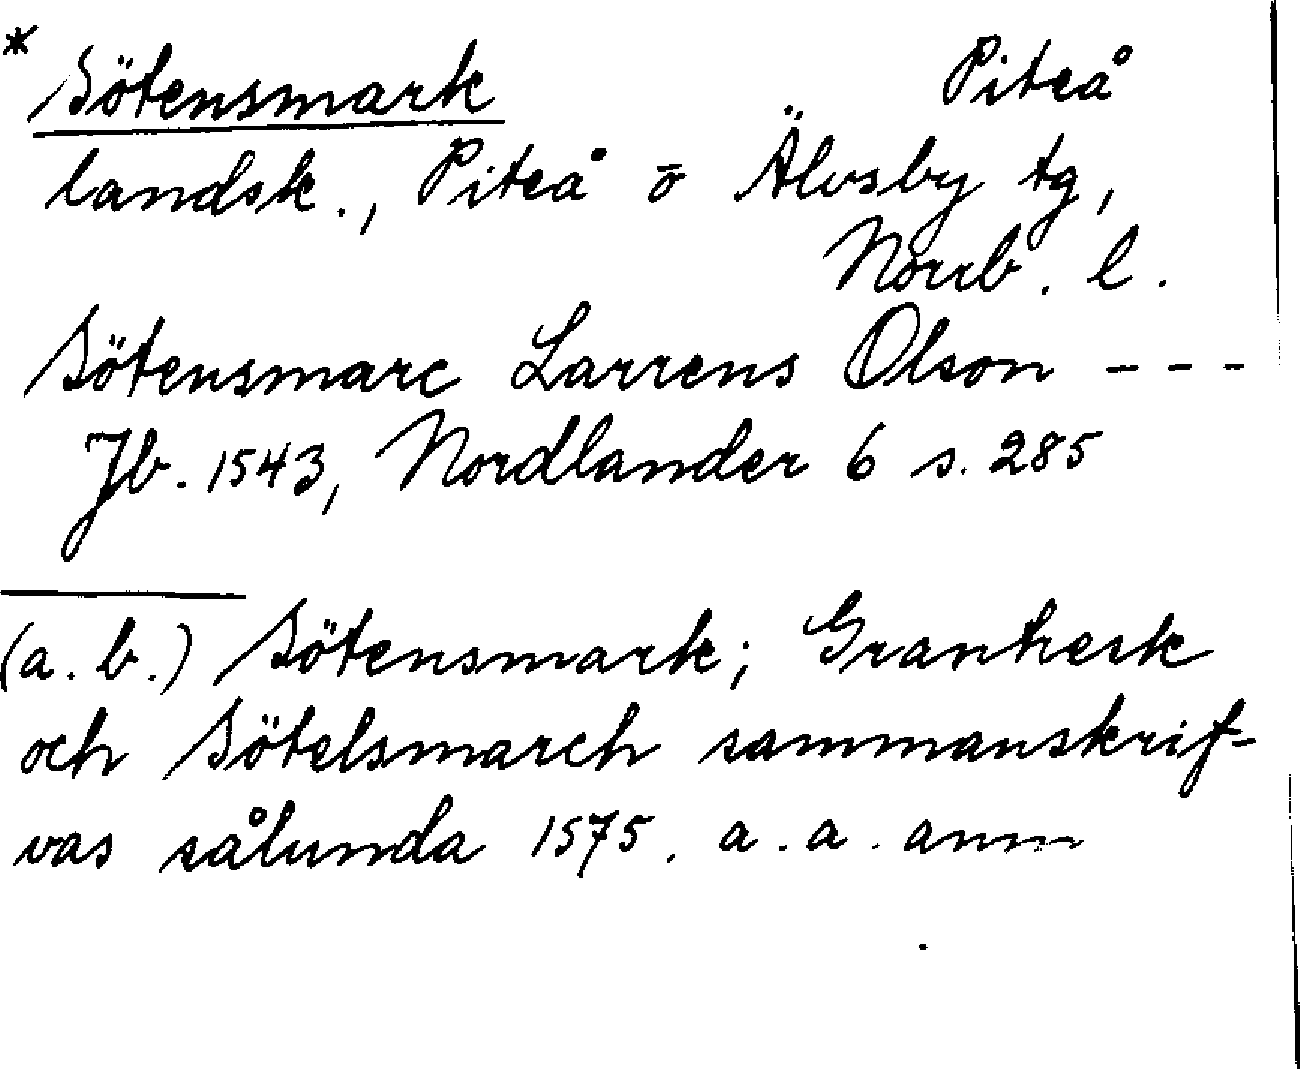 * Sötensmark Piteå
landsk., Piteå o Älvsby tg,
Norrb. l.
Sötensmarc Larrens Olson - - -
Jb. 1543, Nordlander 6 s. 285
(a. b.) Sötensmark; Grantresk
och Sötelsmarch sammanskrif-
vas sålunda 1575. a. a. anm